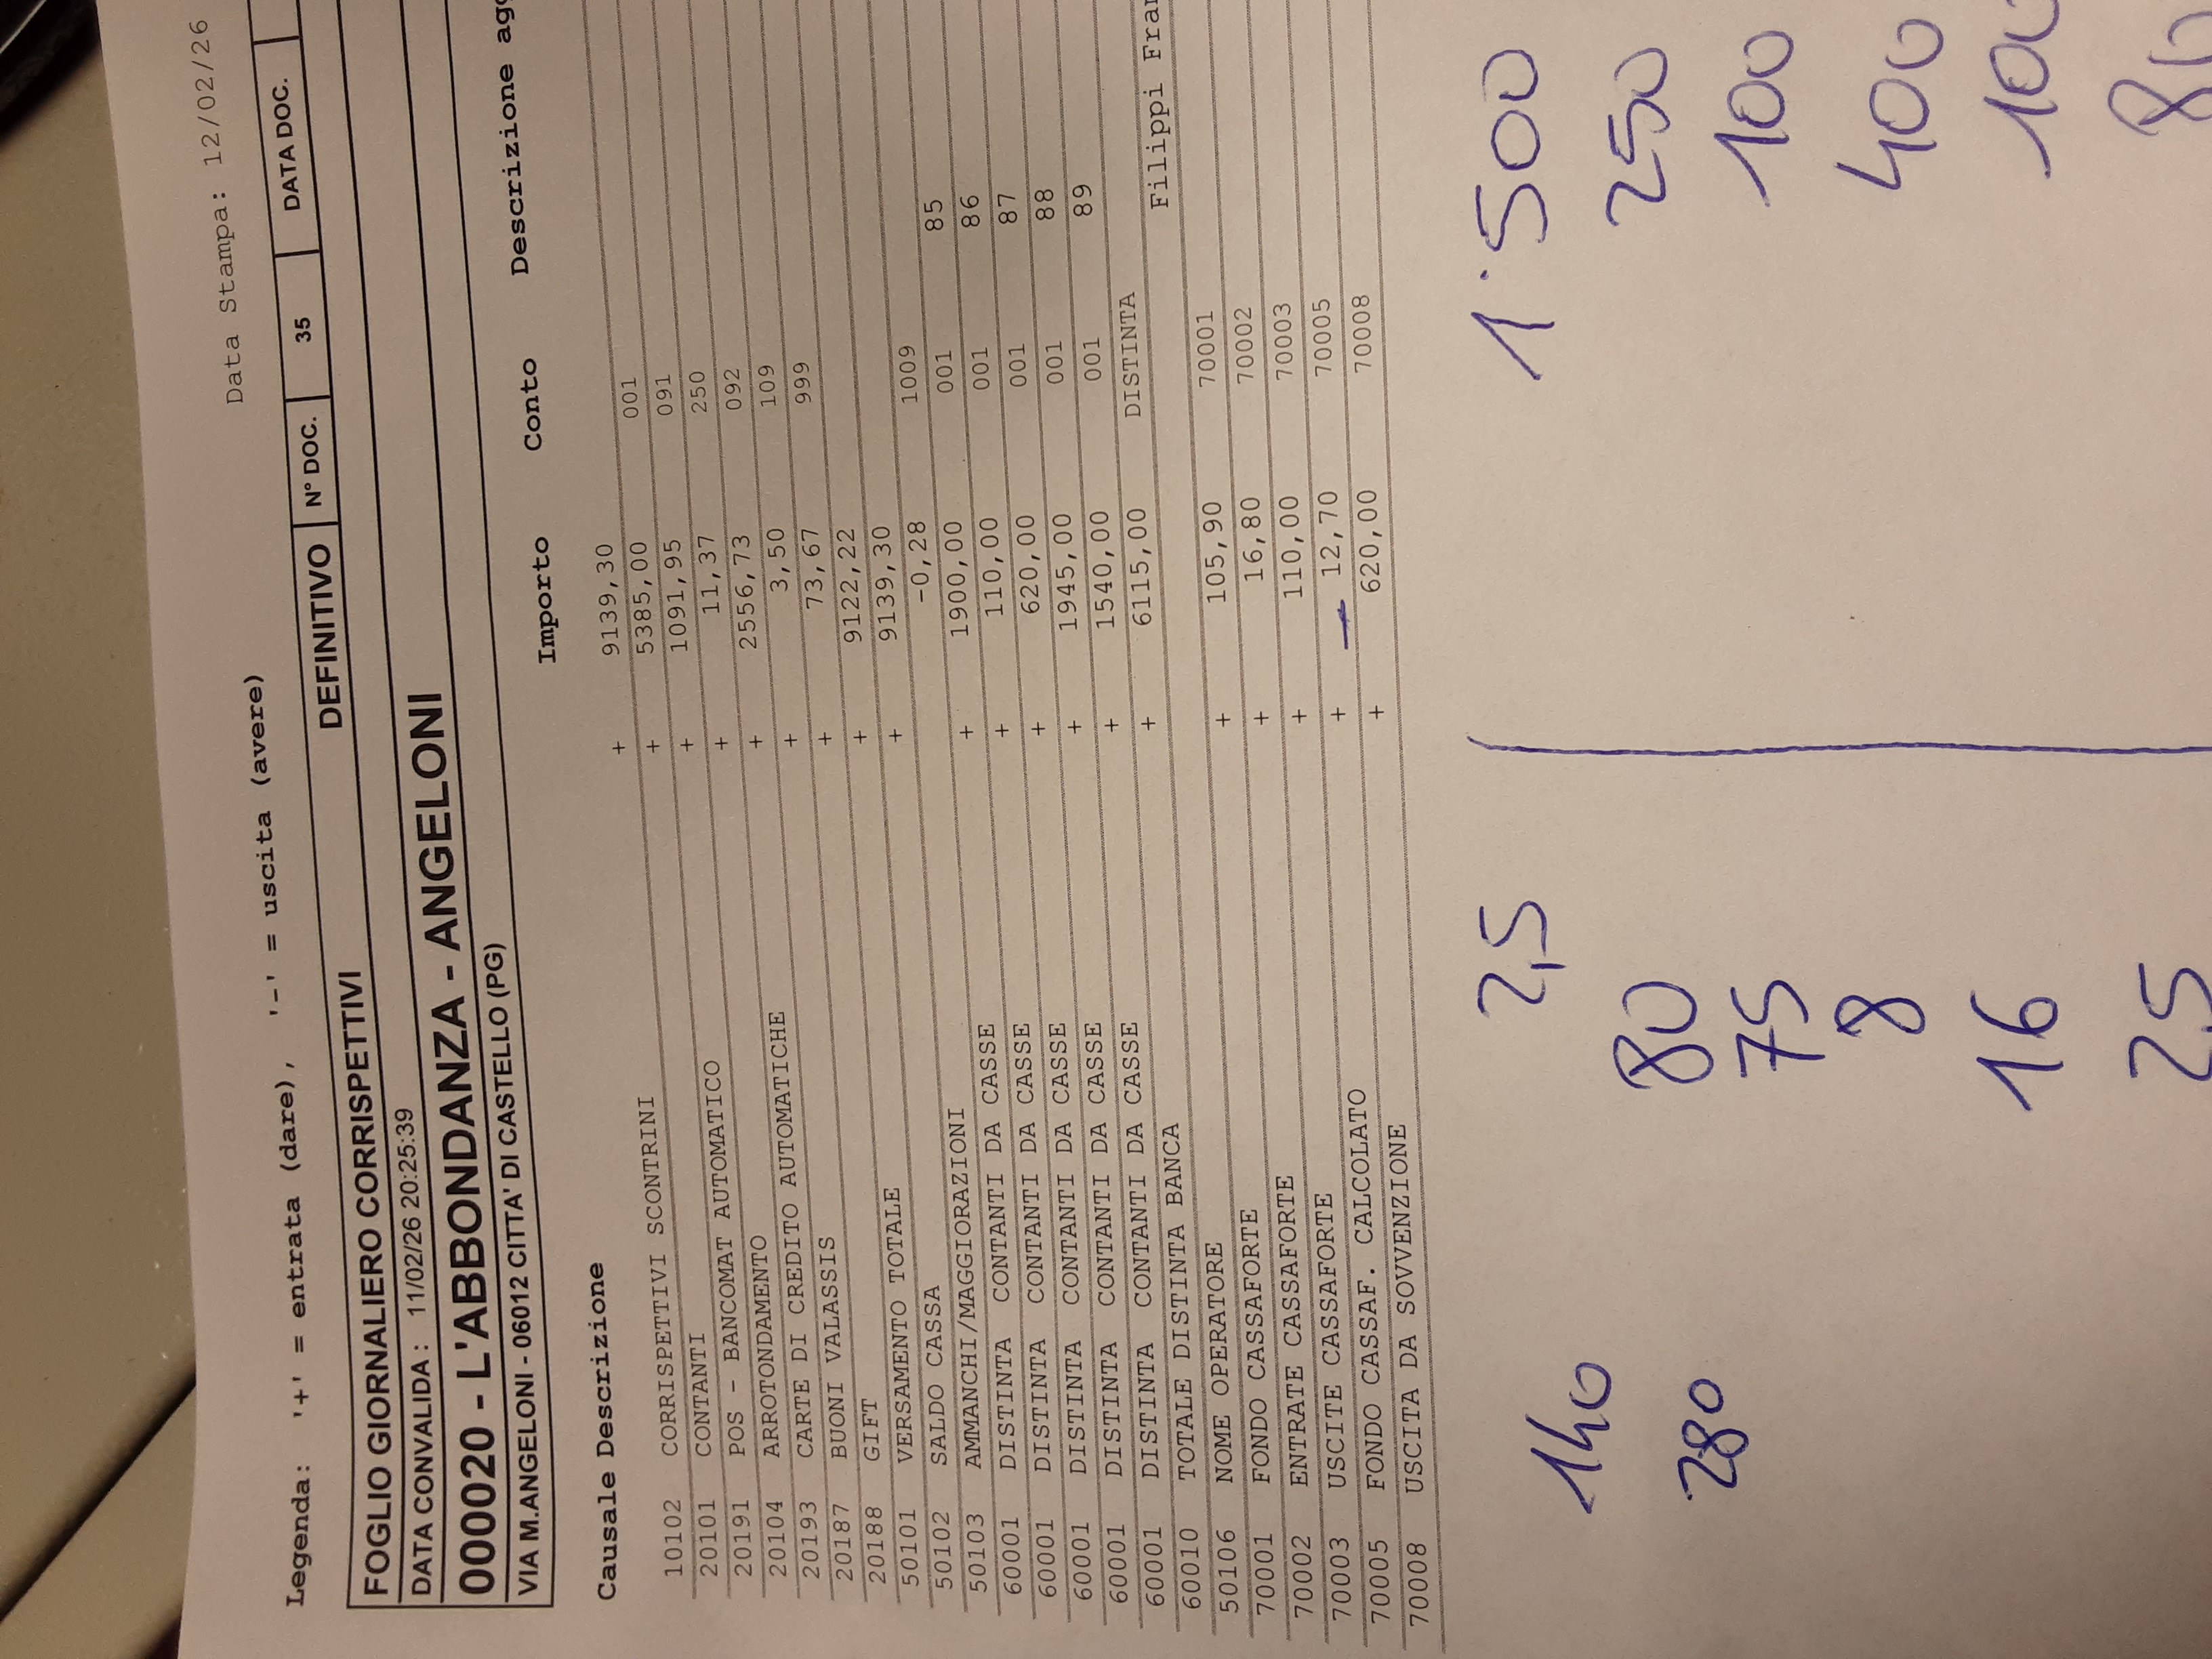 Data Stampa: 12/02/26
Legenda: '+' = entrata (dare), '-' = uscita (avere)
FOGLIO GIORNALIERO CORRISPETTIVI DEFINITIVO N° DOC. 35 DATA DOC.
DATA CONVALIDA : 11/02/26 20:25:39
000020 - L'ABBONDANZA - ANGELONI
VIA M.ANGELONI - 06012 CITTA' DI CASTELLO (PG)
Causale Descrizione Importo Conto Descrizione
10102 CORRISPETTIVI SCONTRINI + 9139,30
20101 CONTANTI + 5385,00 001
20191 POS - BANCOMAT AUTOMATICO + 1091,95 091
20104 ARROTONDAMENTO + 11,37 250
20193 CARTE DI CREDITO AUTOMATICHE + 2556,73 092
20187 BUONI VALASSIS + 3,50 109
20188 GIFT + 73,67 999
50101 VERSAMENTO TOTALE + 9122,22
50102 SALDO CASSA + 9139,30
50103 AMMANCHI/MAGGIORAZIONI -0,28 1009
60001 DISTINTA CONTANTI DA CASSE + 1900,00 001 85
60001 DISTINTA CONTANTI DA CASSE + 110,00 001 86
60001 DISTINTA CONTANTI DA CASSE + 620,00 001 87
60001 DISTINTA CONTANTI DA CASSE + 1945,00 001 88
60001 DISTINTA CONTANTI DA CASSE + 1540,00 001 89
60010 TOTALE DISTINTA BANCA + 6115,00 DISTINTA
50106 NOME OPERATORE Filippi
70001 FONDO CASSAFORTE + 105,90 70001
70002 ENTRATE CASSAFORTE + 16,80 70002
70003 USCITE CASSAFORTE + 110,00 70003
70005 FONDO CASSAF. CALCOLATO + — 12,70 70005
70008 USCITA DA SOVVENZIONE + 620,00 70008
2,5 1·500
140
80 250
280
75 100
8 400
16 100
25